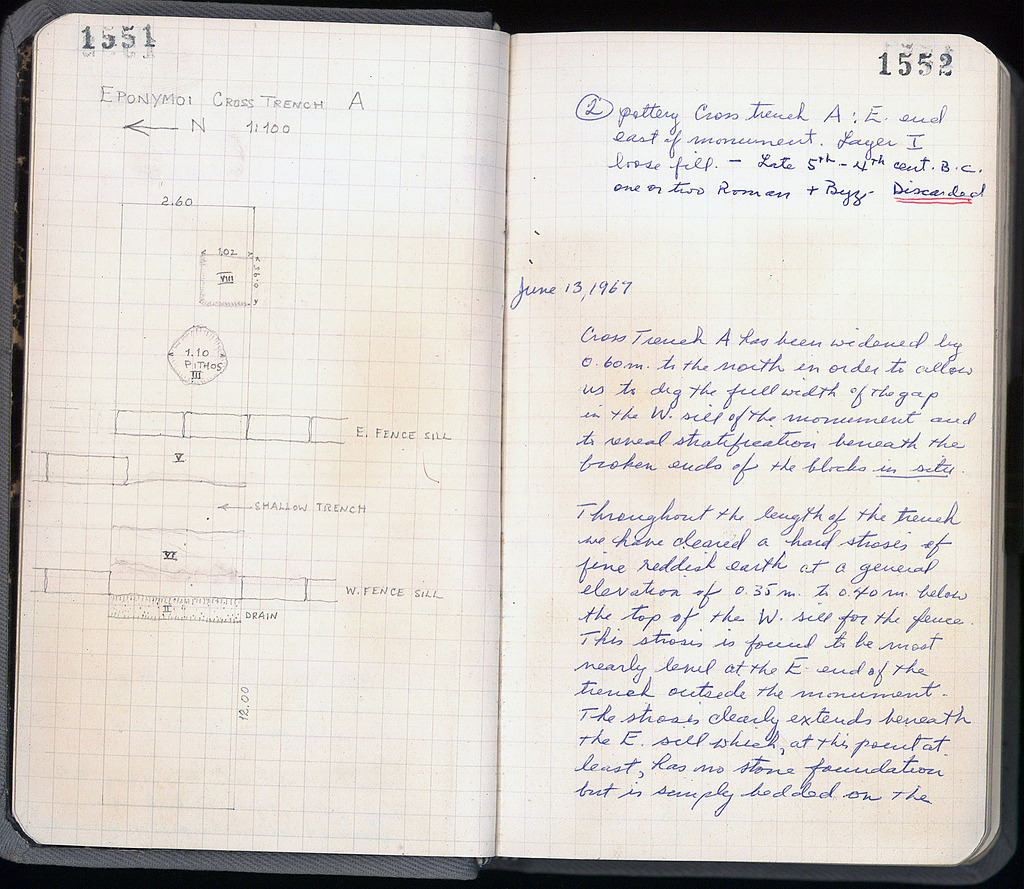 1551
EPONYMOI CROSS TRENCH A
N 1:100
2.60
1.02
0.95
VIII
1.10
PITHOS
III
E. FENCE SILL
V
SHALLOW TRENCH
VI
W. FENCE SILL
II
DRAIN
12.00
1552
② pottery Cross trench A: E. end
east of monument. Layer I
loose fill. – Late 5th – 4th cent. B.C.
one or two Roman + Byz. Discarded
June 13, 1967
Cross Trench A has been widened by
0.60 m. to the north in order to allow
us to dig the full width of the gap
in the W. sill of the monument and
to reveal stratification beneath the
broken ends of the blocks in situ.
Throughout the length of the trench
we have cleared a hard strosis of
fine reddish earth at a general
elevation of 0.35 m. to 0.40 m. below
the top of the W. sill for the fence.
This strosis is found to be most
nearly level at the E. end of the
trench outside the monument.
The strosis clearly extends beneath
the E. sill which, at this point at
least, has no stone foundation
but is simply bedded on the